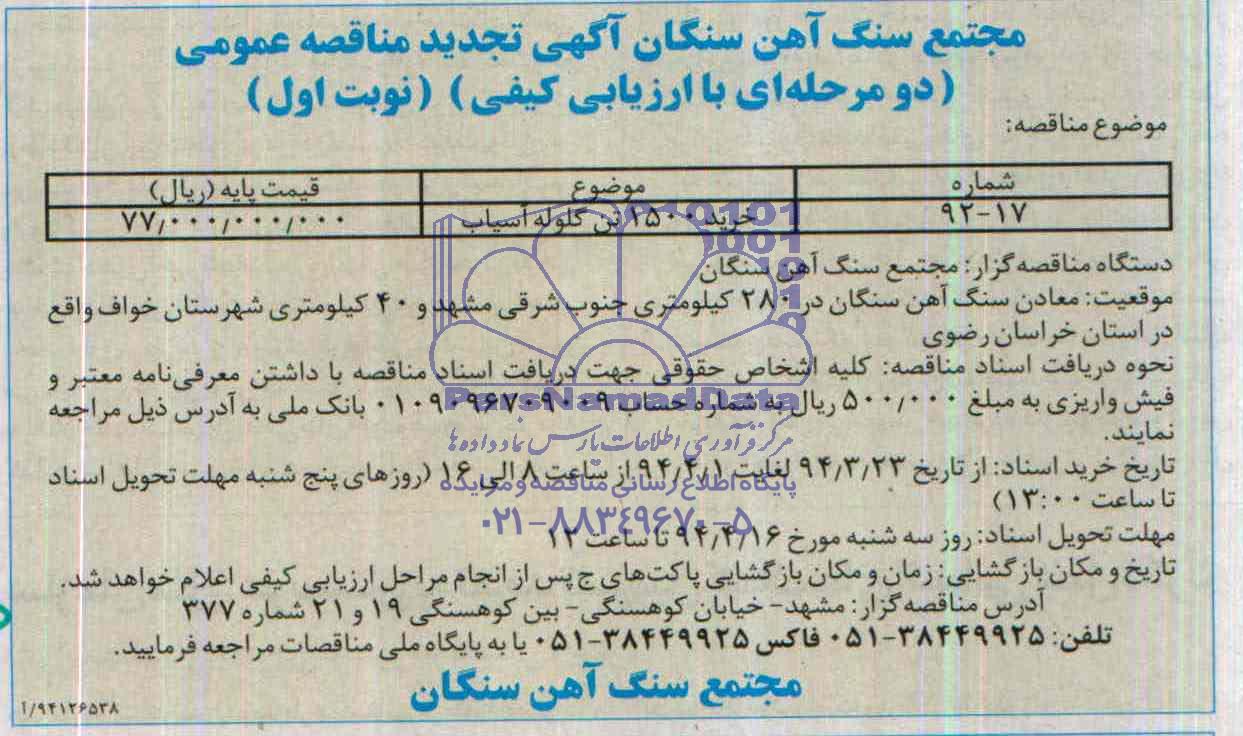 مجتمع سنگ آهن سنگان آگهی تجدید مناقصه عمومی
(دو مرحله‌ای با ارزیابی کیفی) (نوبت اول)
موضوع مناقصه:
شماره موضوع قیمت پایه (ریال)
۹۲-۱۷ خرید ۲۵۰۰ تن گلوله آسیاب ۷۷/۰۰۰/۰۰۰/۰۰۰
دستگاه مناقصه‌گزار: مجتمع سنگ آهن سنگان
موقعیت: معادن سنگ آهن سنگان در ۲۸۰ کیلومتری جنوب شرقی مشهد و ۴۰ کیلومتری شهرستان خواف واقع
در استان خراسان رضوی
نحوه دریافت اسناد مناقصه: کلیه اشخاص حقوقی جهت دریافت اسناد مناقصه با داشتن معرفی‌نامه معتبر و
فیش واریزی به مبلغ ۵۰۰/۰۰۰ ریال به شماره حساب ۰۱۰۹۰۹۶۷۰۹۰۰۹ بانک ملی به آدرس ذیل مراجعه
نمایند.
تاریخ خرید اسناد: از تاریخ ۹۴/۳/۲۳ لغایت ۹۴/۴/۱ از ساعت ۸ الی ۱۶ (روزهای پنج شنبه مهلت تحویل اسناد
تا ساعت ۱۳:۰۰)
مهلت تحویل اسناد: روز سه شنبه مورخ ۹۴/۴/۱۶ تا ساعت ۱۲
تاریخ و مکان بازگشایی: زمان و مکان بازگشایی پاکت‌های ج پس از انجام مراحل ارزیابی کیفی اعلام خواهد شد.
آدرس مناقصه‌گزار: مشهد- خیابان کوهسنگی- بین کوهسنگی ۱۹ و ۲۱ شماره ۳۷۷
تلفن: ۳۸۴۴۹۹۲۵-۰۵۱ فاکس ۳۸۴۴۹۹۲۵-۰۵۱ یا به پایگاه ملی مناقصات مراجعه فرمایید.
مجتمع سنگ آهن سنگان
۹۴۱۲۶۵۳۸/آ
ParsNamadData
مرکز فرآوری اطلاعات پارس نماد داده‌ها
پایگاه اطلاع رسانی مناقصه و مزایده
۰۲۱-۸۸۳۴۹۶۷۰-۵